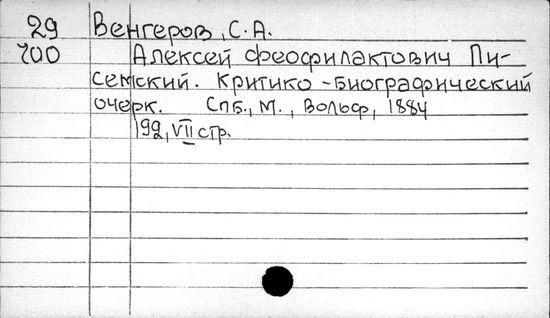 29 Венгеров, С.А.
700 Алексей Феофилактович Пи-
семский. Критико-биографический
очерк. Спб., М., Вольф, 1884
192, VII стр.